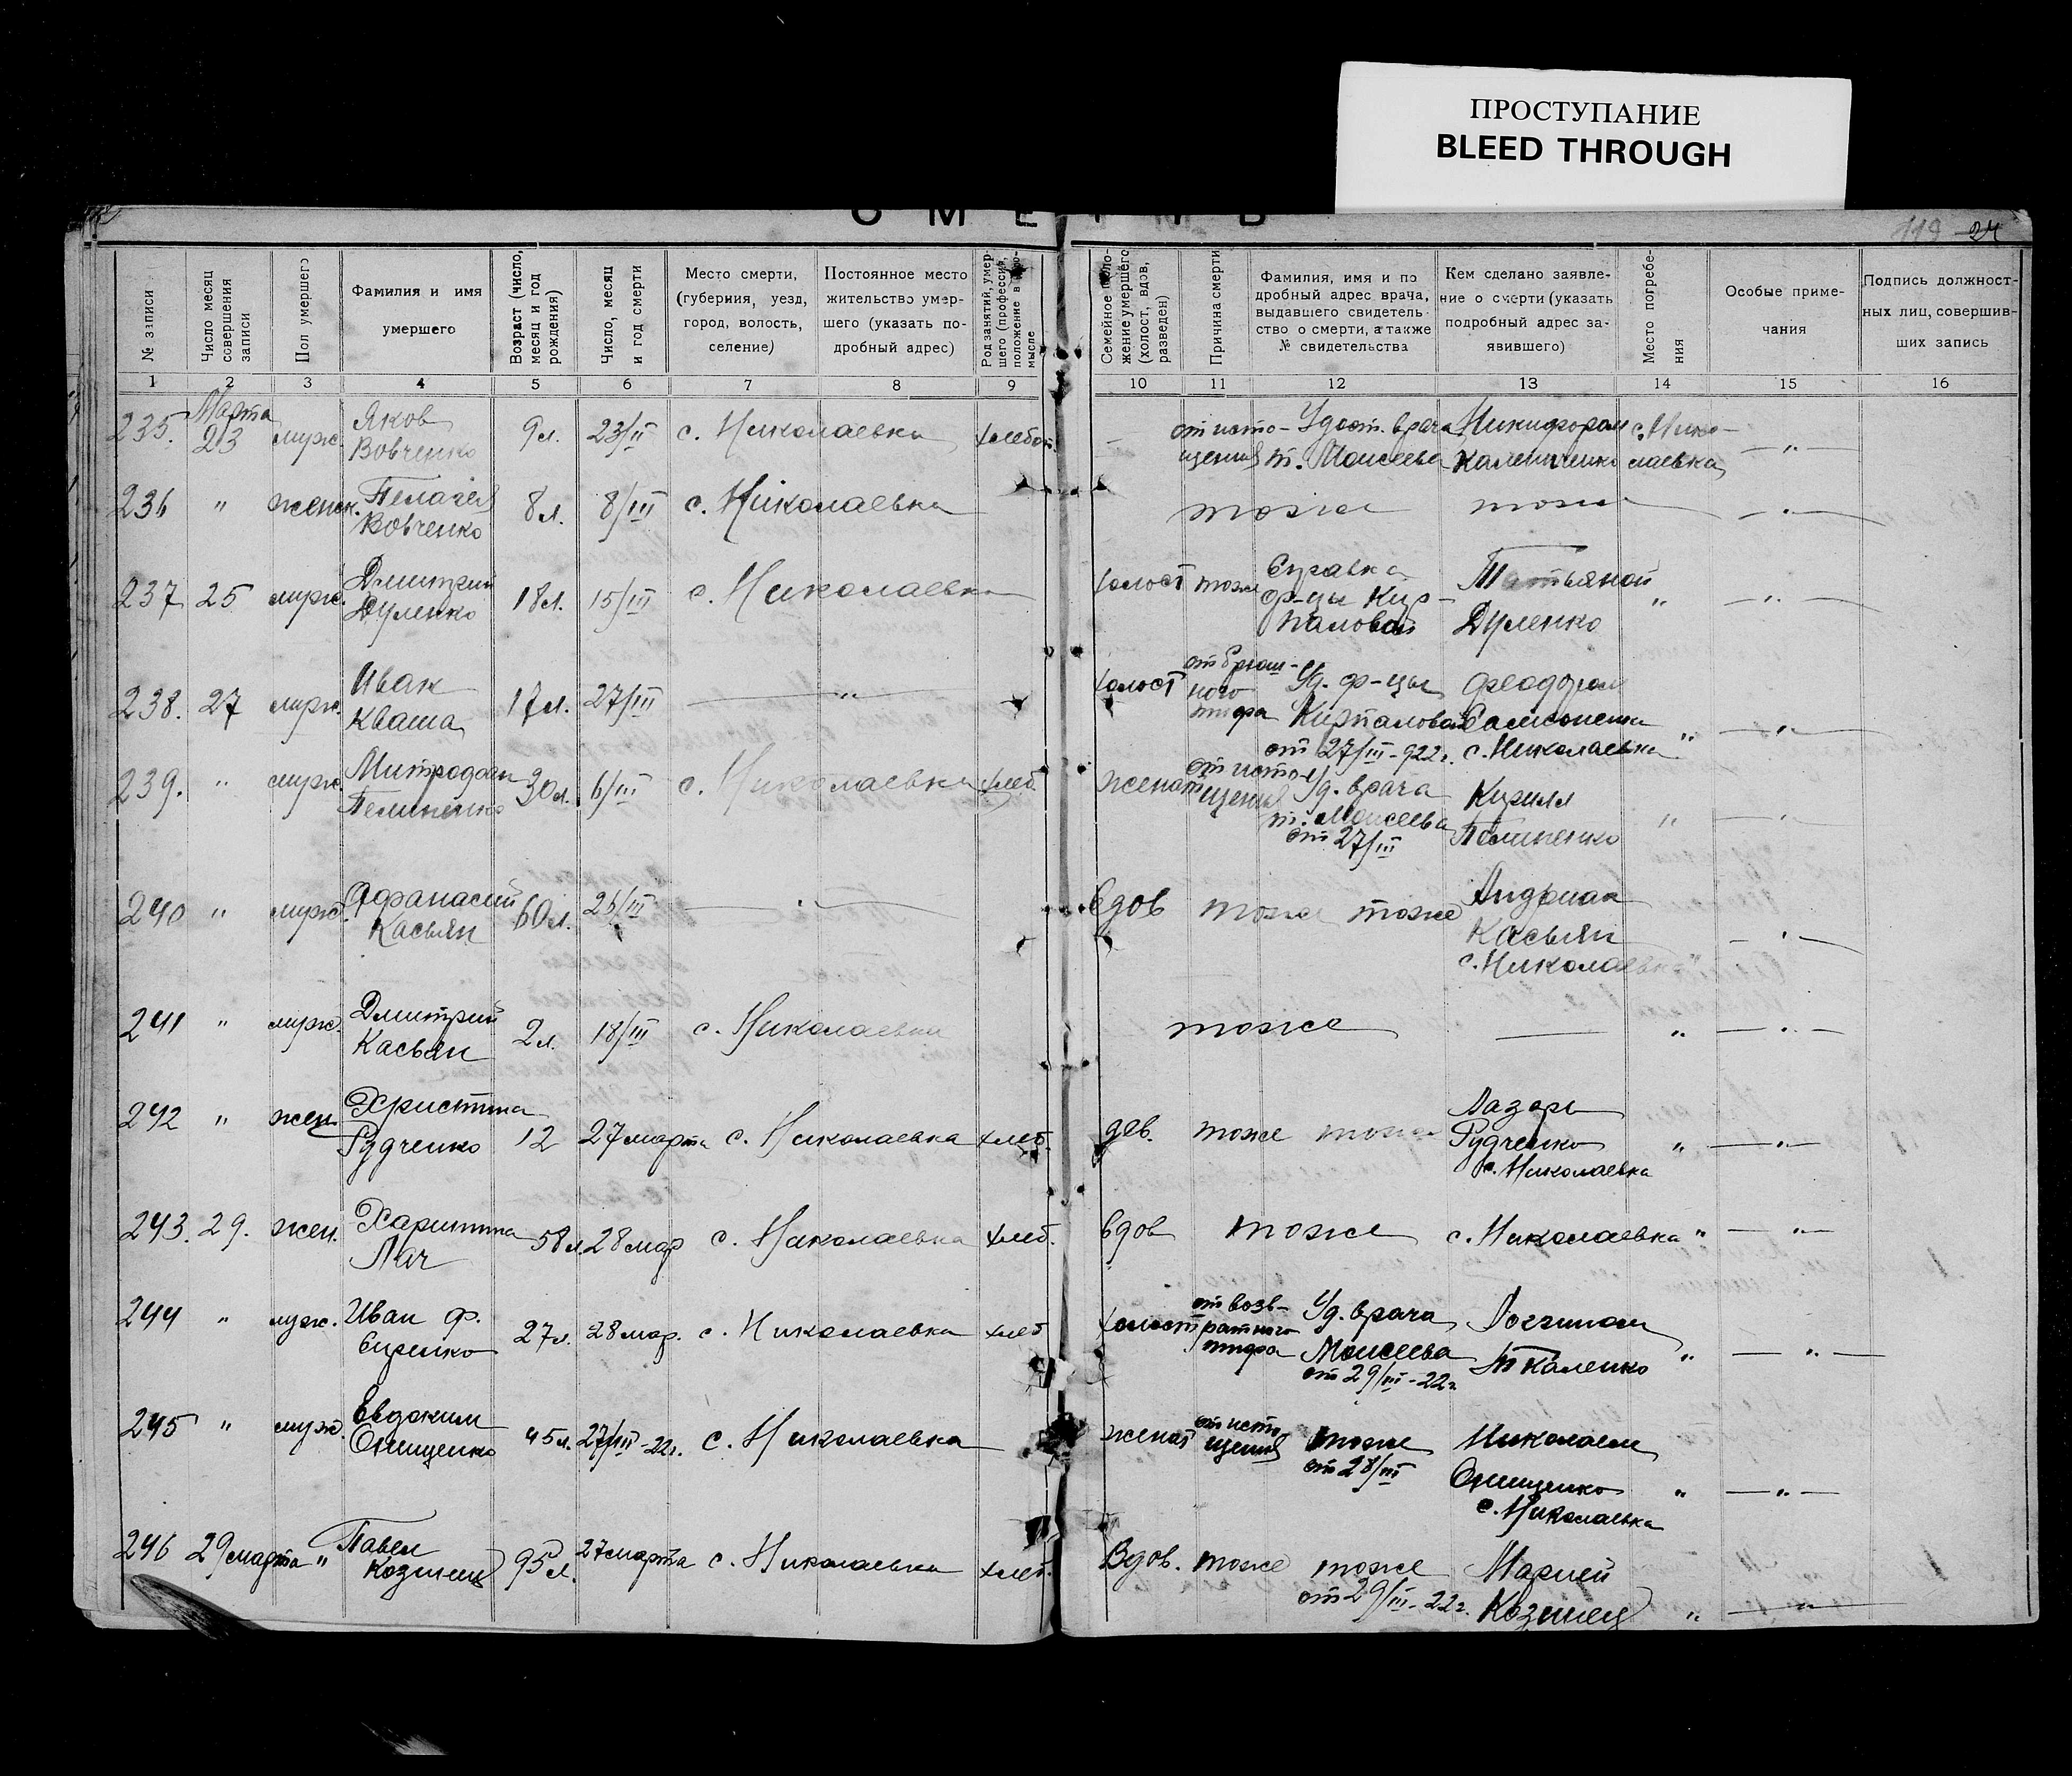 ПРОСТУПАНИЕ
BLEED THROUGH
О М Е Р Т В
119 24
№ записи
Число месяц совершения записи
Пол умершего
Фамилия и имя умершего
Возраст (число, месяц и год рождения)
Число, месяц и год смерти
Место смерти, (губерния, уезд, город, волость, селение)
Постоянное место жительство умершего (указать подробный адрес)
Род занятий, умершего (профессия, положение в промысле
Семейное положение умершего (холост, вдов, разведен)
Причина смерти
Фамилия, имя и подробный адрес врача, выдавшего свидетельство о смерти, а также № свидетельства
Кем сделано заявление о смерти (указать подробный адрес заявившего)
Место погребения
Особые примечания
Подпись должностных лиц, совершивших запись
1 2 3 4 5 6 7 8 9 10 11 12 13 14 15 16
235. Марта 23 мужс. Яков Вовченко 9л. 23/II с. Николаевка хлебоп. — от истощения Удост. врача т. Моисеева Никифором с. Николаевка — " —
236 " женск. Пелагея Вовченко 8л. 8/III с. Николаевка тоже тоже — " —
237 25 мужс. Дмитрий Дуленко 18л. 15/III с. Николаевка холост тоже Справка ф-цы Татьяной Дуленко " — " —
238. 27 мужс. Иван Кваша 17л. 27/III — " — холост от брюшного тифа Уд. ф-цы от 27/III-922г. Феодором с. Николаевка " — " —
239. " мужс. Митрофан 30л. 6/III с. Николаевка хлеб. женат от истощения Уд. врача т. Моисеева от 27/III Кирилл " — " —
240 " мужс. Афанасий Касьян 60л. 26/III — " — вдов тоже тоже Андриан Касьян с. Николаевка " — " —
241 " мужс. Дмитрий Касьян 2л. 18/III с. Николаевка тоже — " — " —
242 " жен. Христина Рудченко 12 27 марта с. Николаевка хлеб. дев. тоже тоже Лазарь Рудченко с. Николаевка " — " —
243. 29. жен. Харитина Лач 58л. 28 мар с. Николаевка хлеб. вдов тоже с. Николаевка " — " —
244 " муж. Иван Ф. 27л. 28 мар. с. Николаевка хлеб холост от возвратного тифа Уд. врача Моисеева от 29/III-22г. Ткаленко " — " —
245 " муж. Евдоким Онищенко 45л. 27/III-22г. с. Николаевка женат от истощения тоже от 28/III Николаем Онищенко с. Николаевка " — " —
246 29 марта " Павел Козинец 95л. 27 марта с. Николаевка хлеб. Вдов. тоже тоже от 29/III-22г. Марией Козинец " — " —